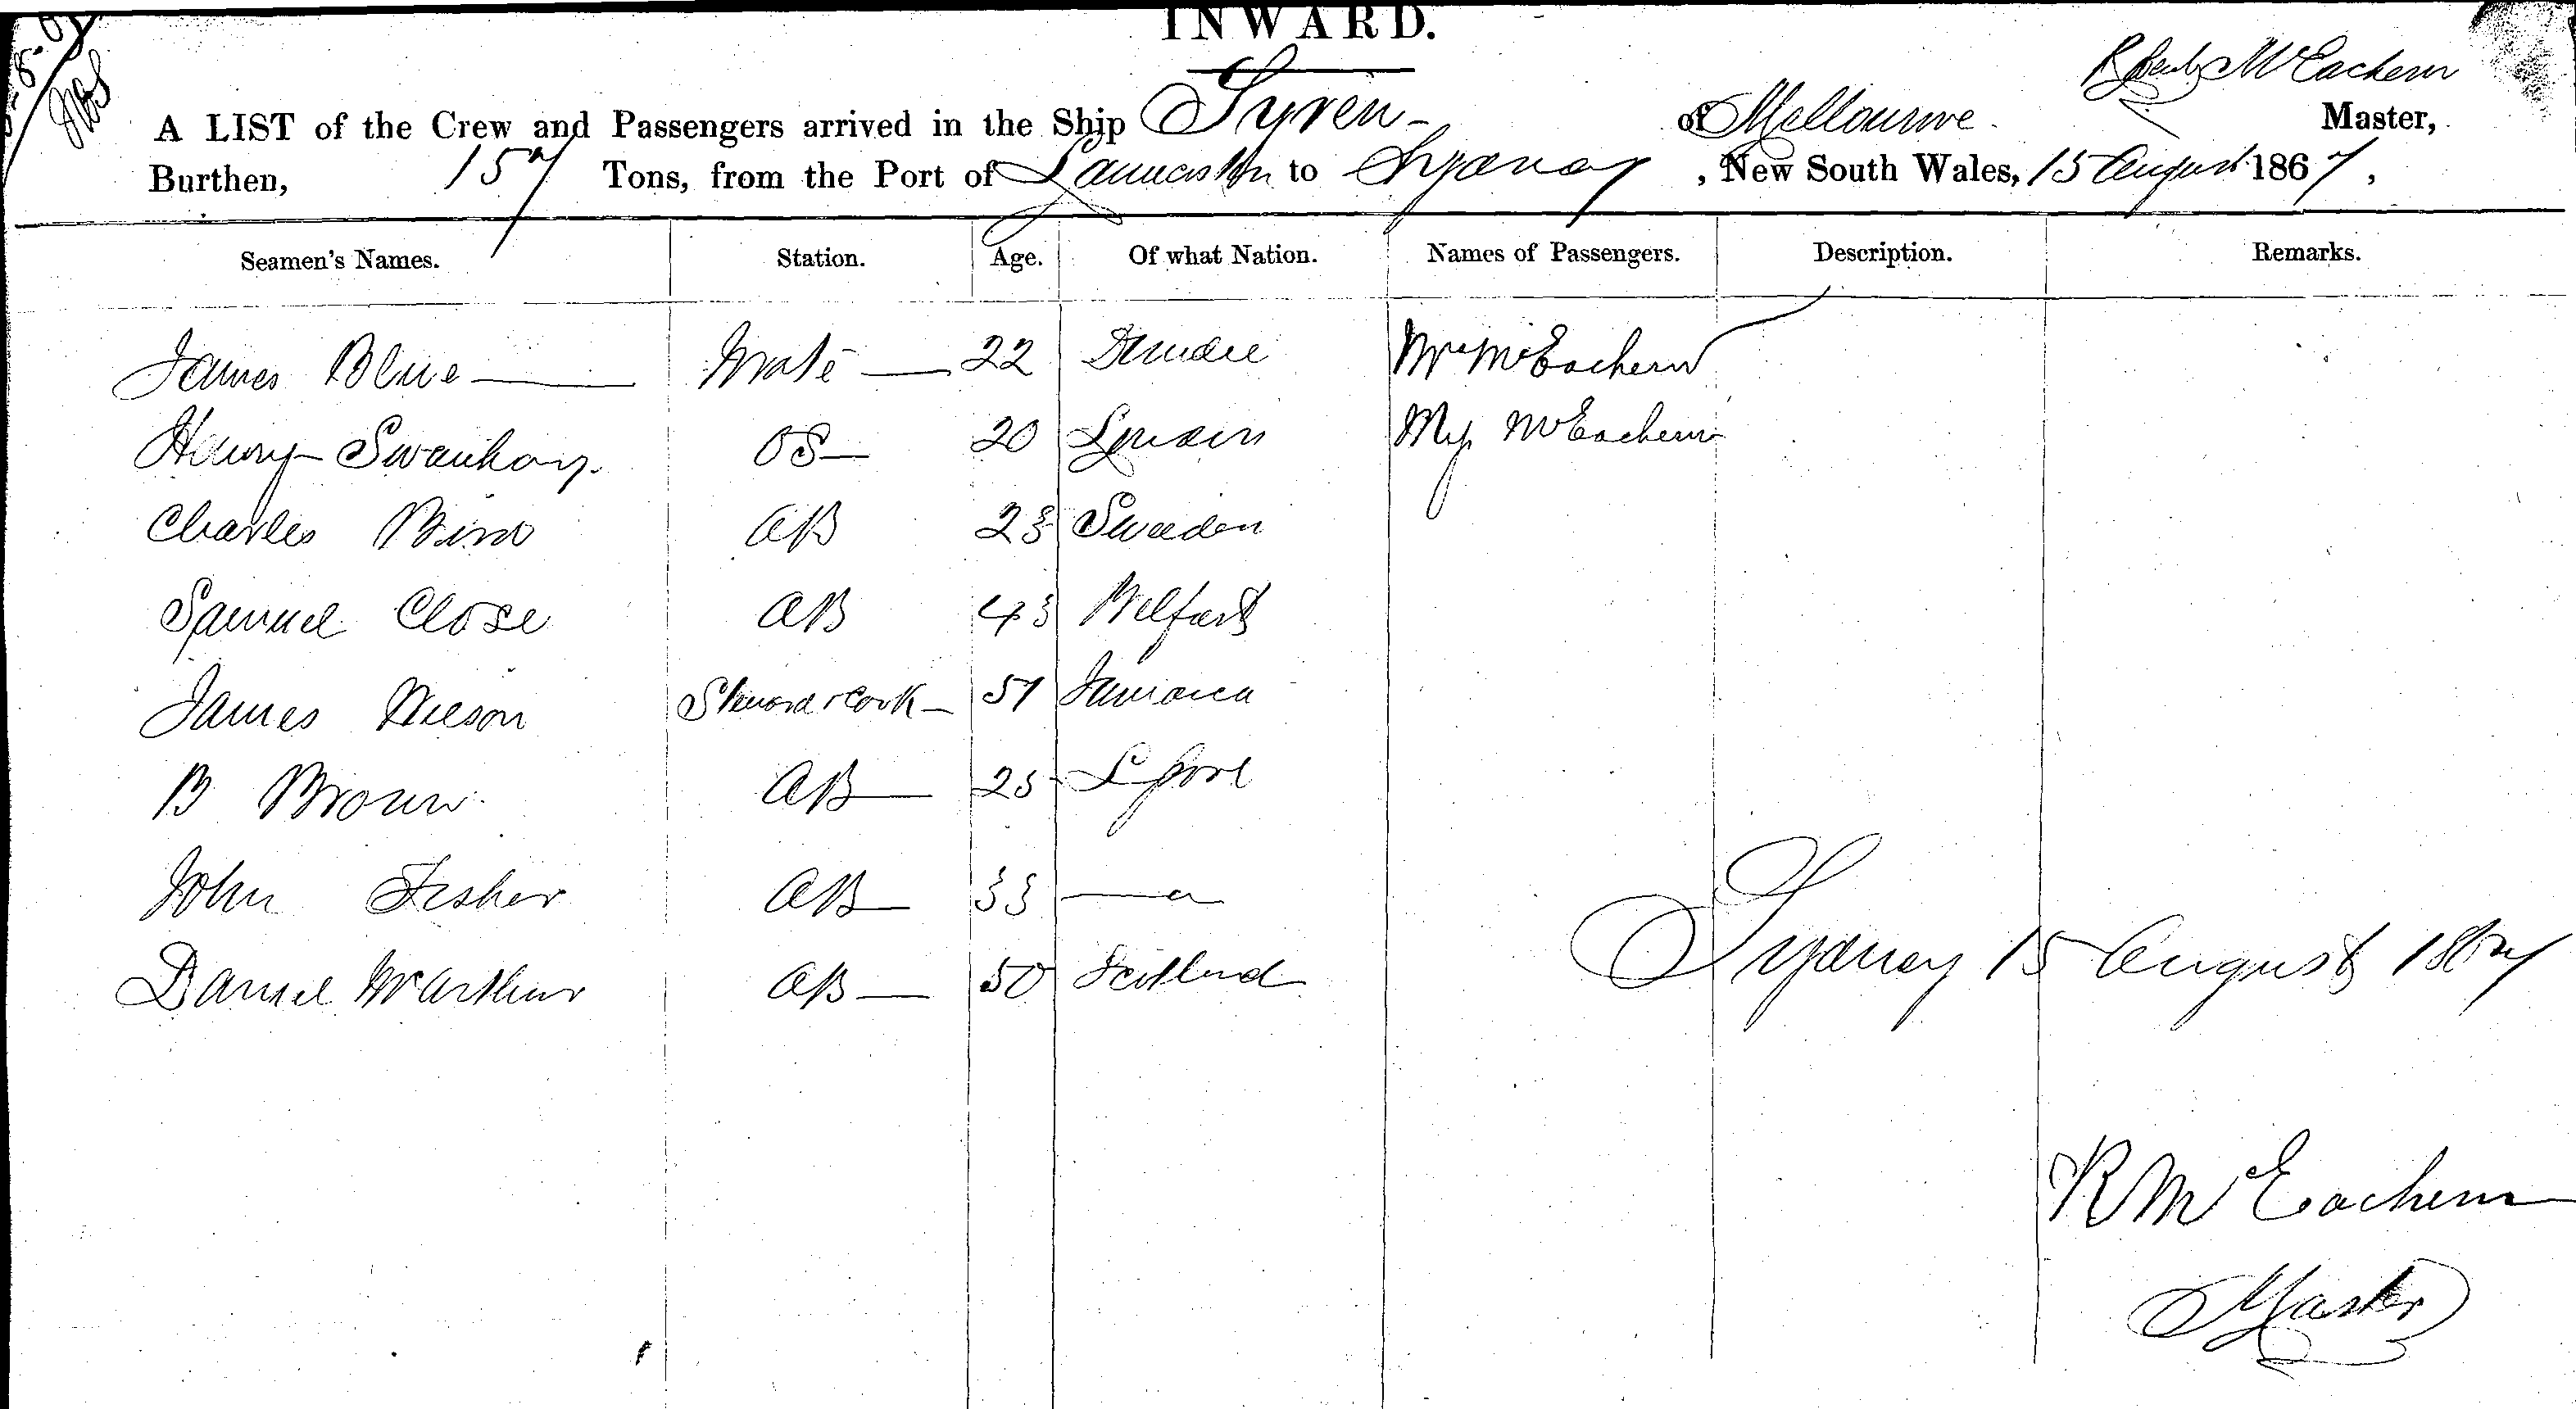 INWARD.
McEachern
A LIST of the Crew and Passengers arrived in the Ship Syren - of Melbourne Master,
Burthen, 157 Tons, from the Port of Launceston to Sydney, New South Wales, 15 August 1867,
Seamen's Names. Station. Age. Of what Nation. Names of Passengers. Description. Remarks.
James Blue Mate 22 Dundee Mrs McEachern
Henry Swanhay. OS 20 London McEachern
Charles Bird AB 23 Sweden
Samuel Close AB 43 Belfast
James Steward & Cook 51 Jamaica
B Brown AB 25 Lpool
John Fisher AB 33
Daniel McArthur AB 50 Scotland
Sydney 15 August 1867
R McEachern
Master